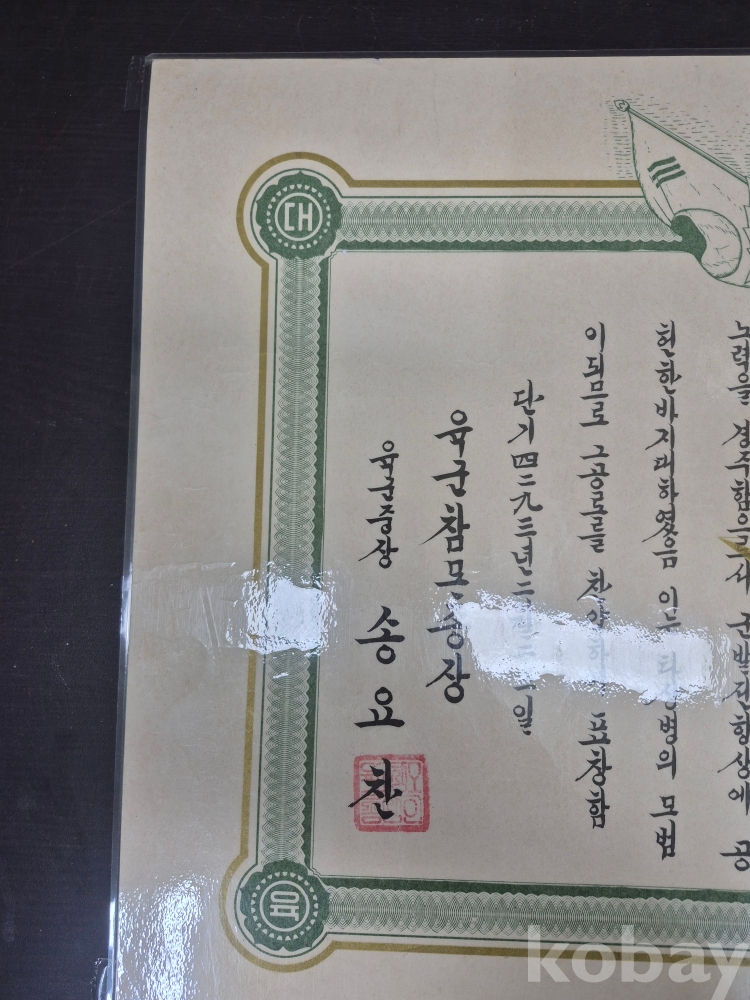 대
노력을 경주함으로서 군발전향상에 공
헌한바지대하였음 이는 타장병의 모범
이되므로 그공로를 찬양하고 표창함
단기四二九三년 일
육군참모총장
육군중장 송요찬
육
kobay